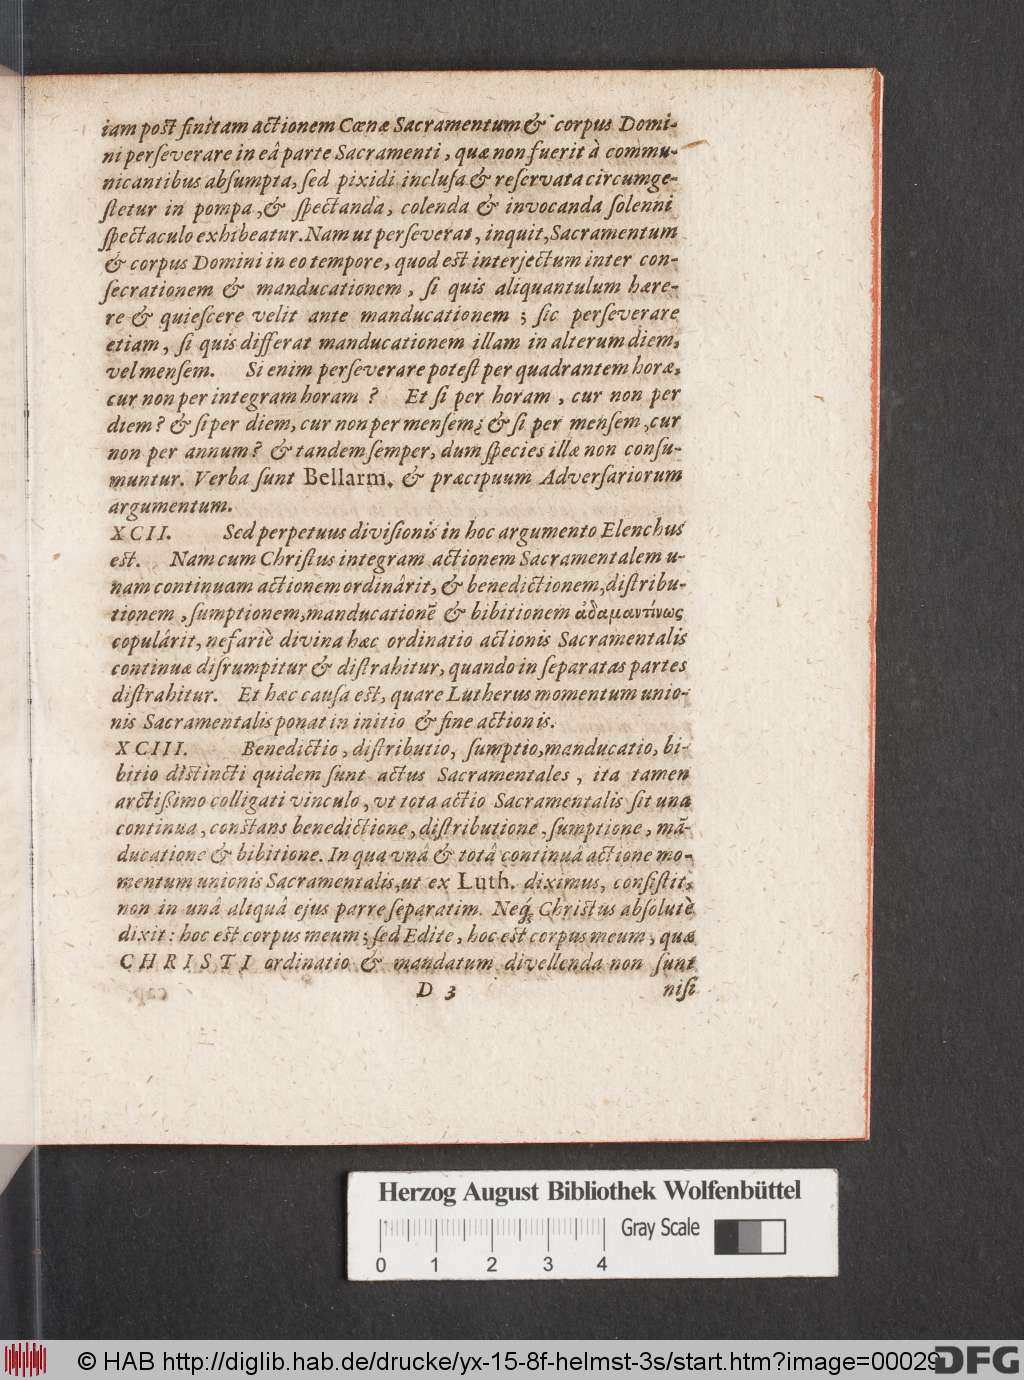 iam poſt finitam actionem Cœnæ Sacramentum & corpus Domi-
ni perſeverare in eâ parte Sacramenti, quæ non fuerit à commu-
nicantibus abſumpta, ſed pixidi incluſa & reſervata circumge-
ſtetur in pompa, & ſpectanda, colenda & invocanda ſolenni
ſpectaculo exhibeatur. Nam ut perſeverat, inquit, Sacramentum
& corpus Domini in eo tempore, quod est interjectum inter con-
ſecrationem & manducationem, ſi quis aliquantulum hære-
re & quieſcere velit ante manducationem; ſic perſeverare
etiam, ſi quis differat manducationem illam in alterum diem,
vel menſem. Si enim perſeverare poteſt per quadrantem horæ,
cur non per integram horam? Et ſi per horam, cur non per
diem? & ſi per diem, cur non per menſem; & ſi per menſem, cur
non per annum? & tandem ſemper, dum ſpecies illæ non conſu-
muntur. Verba ſunt Bellarm. & præcipuum Adverſariorum
argumentum.
XCII. Sed perpetuus diviſionis in hoc argumento Elenchus
est. Nam cum Chriſtus integram actionem Sacramentalem u-
nam continuam actionem ordinârit, & benedictionem, diſtribu-
tionem, ſumptionem, manducationē & bibitionem ἀδαμαντίνως
copulárit, nefariè divina hæc ordinatio actionis Sacramentalis
continuæ diſrumpitur & diſtrahitur, quando in ſeparatas partes
diſtrahitur. Et hæc cauſa est, quare Lutherus momentum unio-
nis Sacramentalis ponat in initio & fine actionis.
XCIII. Benedictio, diſtributio, ſumptio, manducatio, bi-
bitio distincti quidem ſunt actus Sacramentales, ita tamen
arctiſſimo colligati vinculo, vt tota actio Sacramentalis ſit una
continua, constans benedictione, diſtributione, ſumptione, mā-
ducatione & bibitione. In qua vnâ & totâ continuâ actione mo-
mentum unionis Sacramentalis, ut ex Luth. diximus, conſiſtit,
non in unâ aliquâ ejus parte ſeparatim. Neq́; Christus abſolutè
dixit: hoc est corpus meum; ſed Edite, hoc est corpus meum, quæ
CHRISTI ordinatio & mandatum divellenda non ſunt
D 3 niſi
Herzog August Bibliothek Wolfenbüttel
Gray Scale
0 1 2 3 4
© HAB http://diglib.hab.de/drucke/yx-15-8f-helmst-3s/start.htm?image=00029
DFG